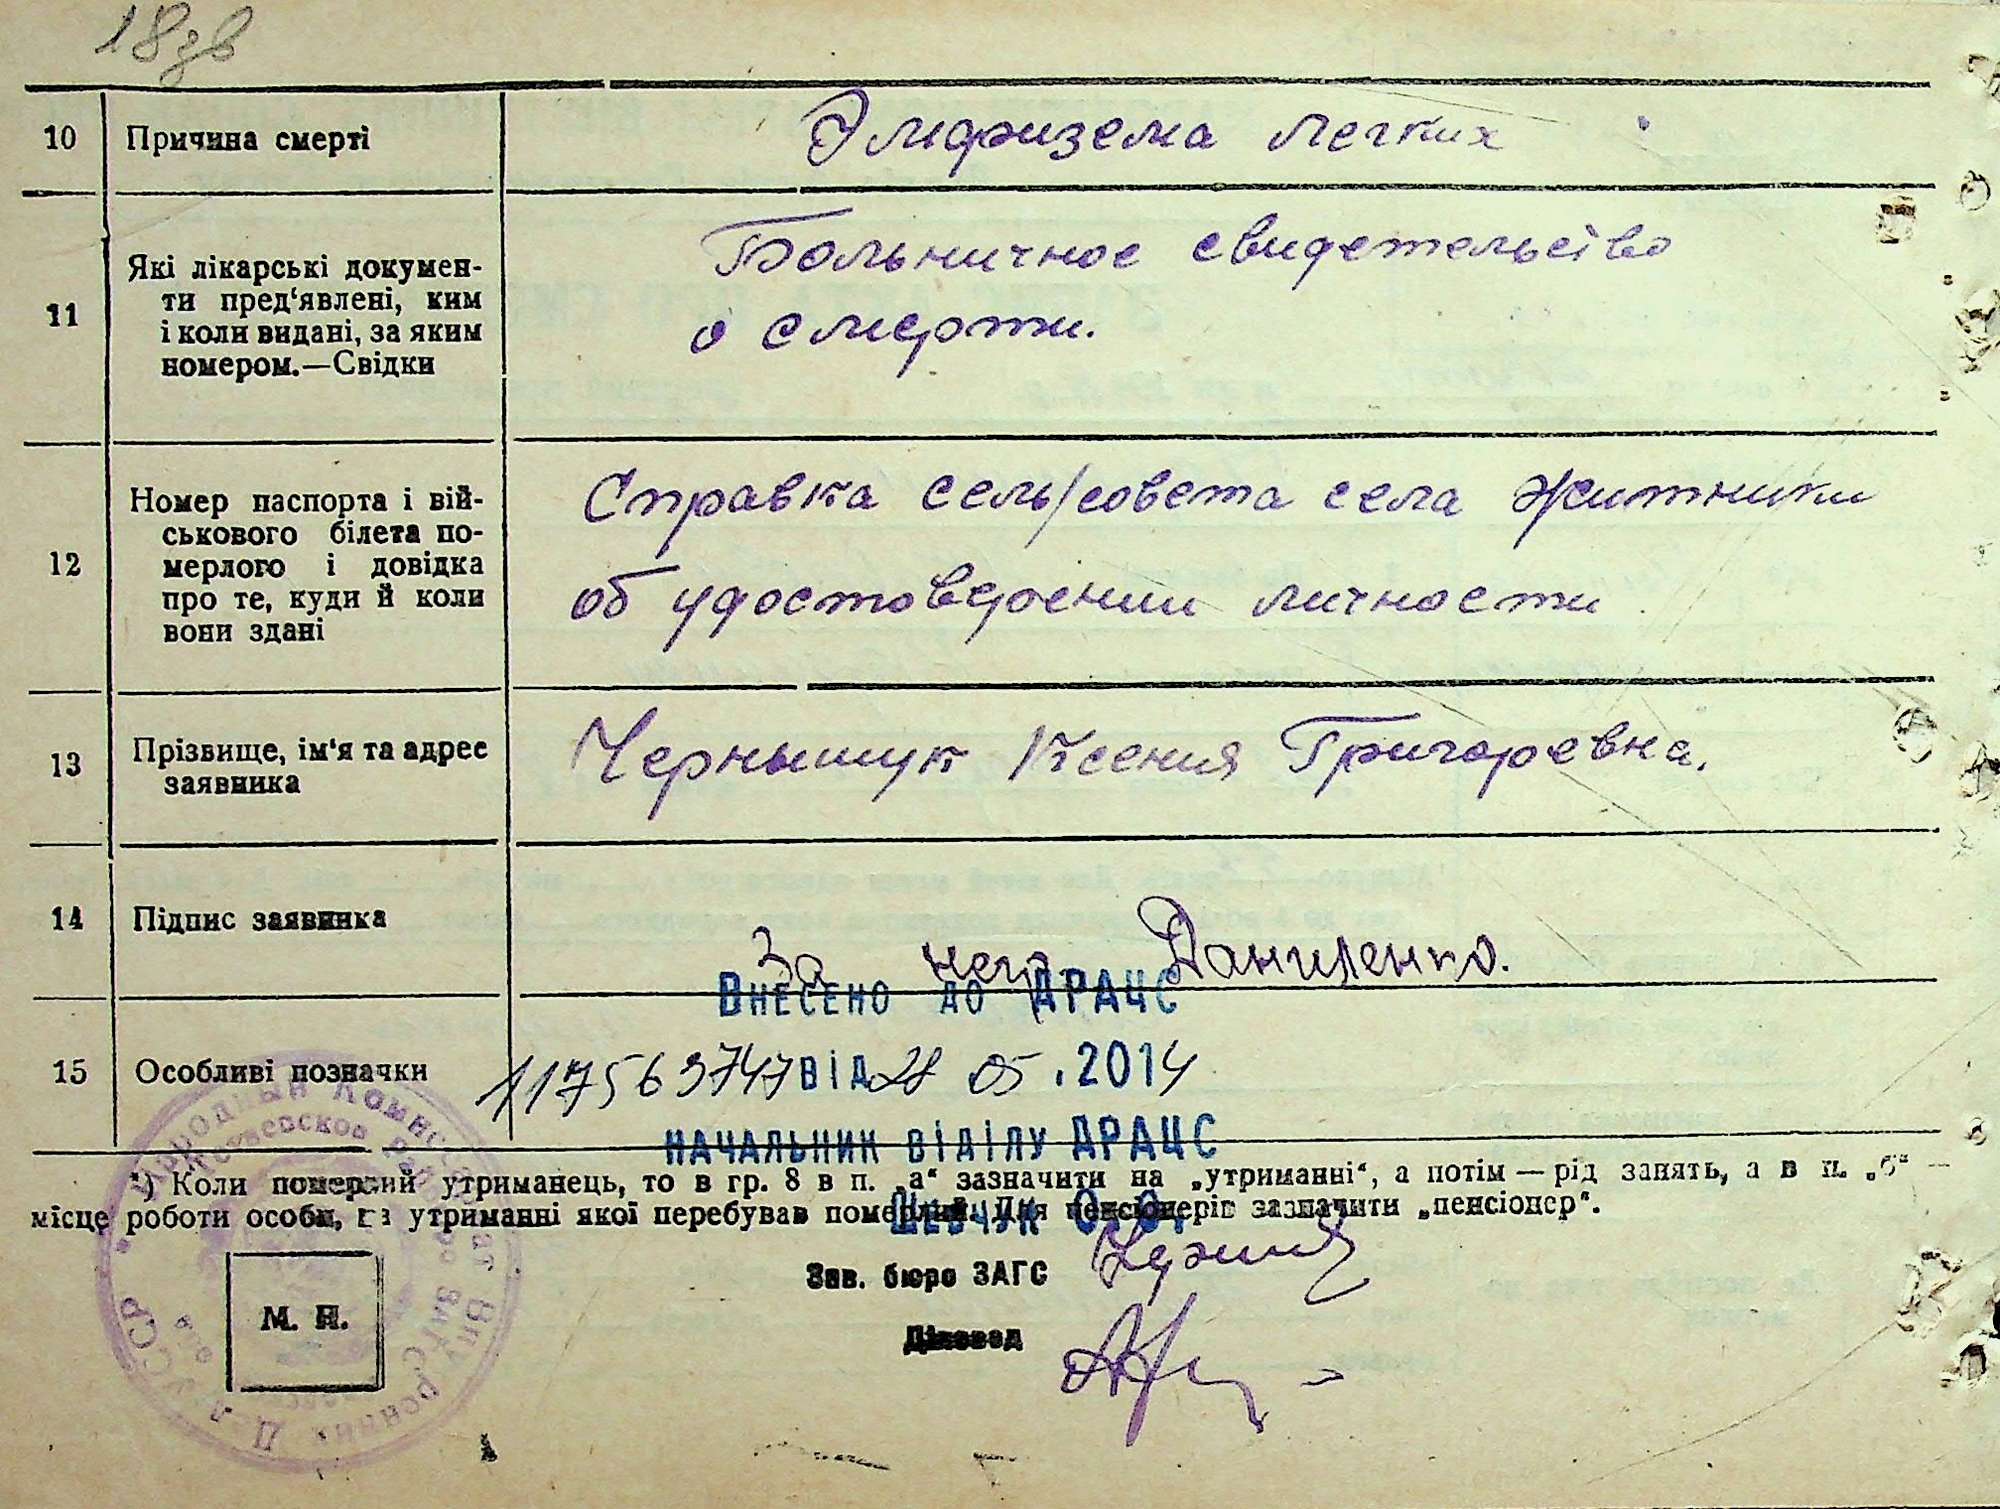 18зв
10 Причина смерті Эмфизема легких
11 Які лікарські докумен-
ти пред'явлені, ким
і коли видані, за яким
номером.—Свідки
Больничное свидетельство
о смерти.
12 Номер паспорта і вій-
ськового білета по-
мерлого і довідка
про те, куди й коли
вони здані
Справка сель/совета села Житники
об удостоверении личности
13 Прізвище, ім'я та адрес
заявника
Чернышук Ксения Григоревна.
14 Підпис заявника За него Даниленко.
Внесено до ДРАЦС
15 Особливі позначки 117563747 від 28 05 .2014
начальник відділу ДРАЦС
*) Коли померлий утриманець, то в гр. 8 в п. „а“ зазначити на „утриманні“, а потім — рід занять, а в п. „б“ —
місце роботи особи, на утриманні якої перебував померлий. Для пенсіонерів зазначити „пенсіонер“.
Шевчук О.О.
Зав. бюро ЗАГС
Діловод
М. П.
Народный Комиссариат Внутренних Дел УССР